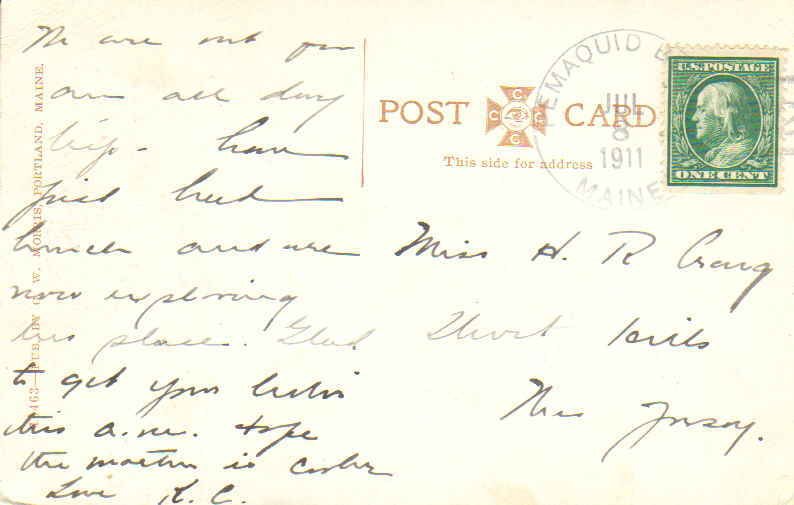 We are out for
an all day
trip - have
just had
lunch and are
now exploring
this place. Glad
to get your letter
this a.m. Hope
the weather is cooler
Love K. C.
463—PUB. BY G. W. MORRIS, PORTLAND, MAINE.
POST CARD
This side for address
PEMAQUID
JUL
8
1911
MAINE
U.S. POSTAGE
ONE CENT
Miss H. R. Craig
Short Hills
New Jersey.